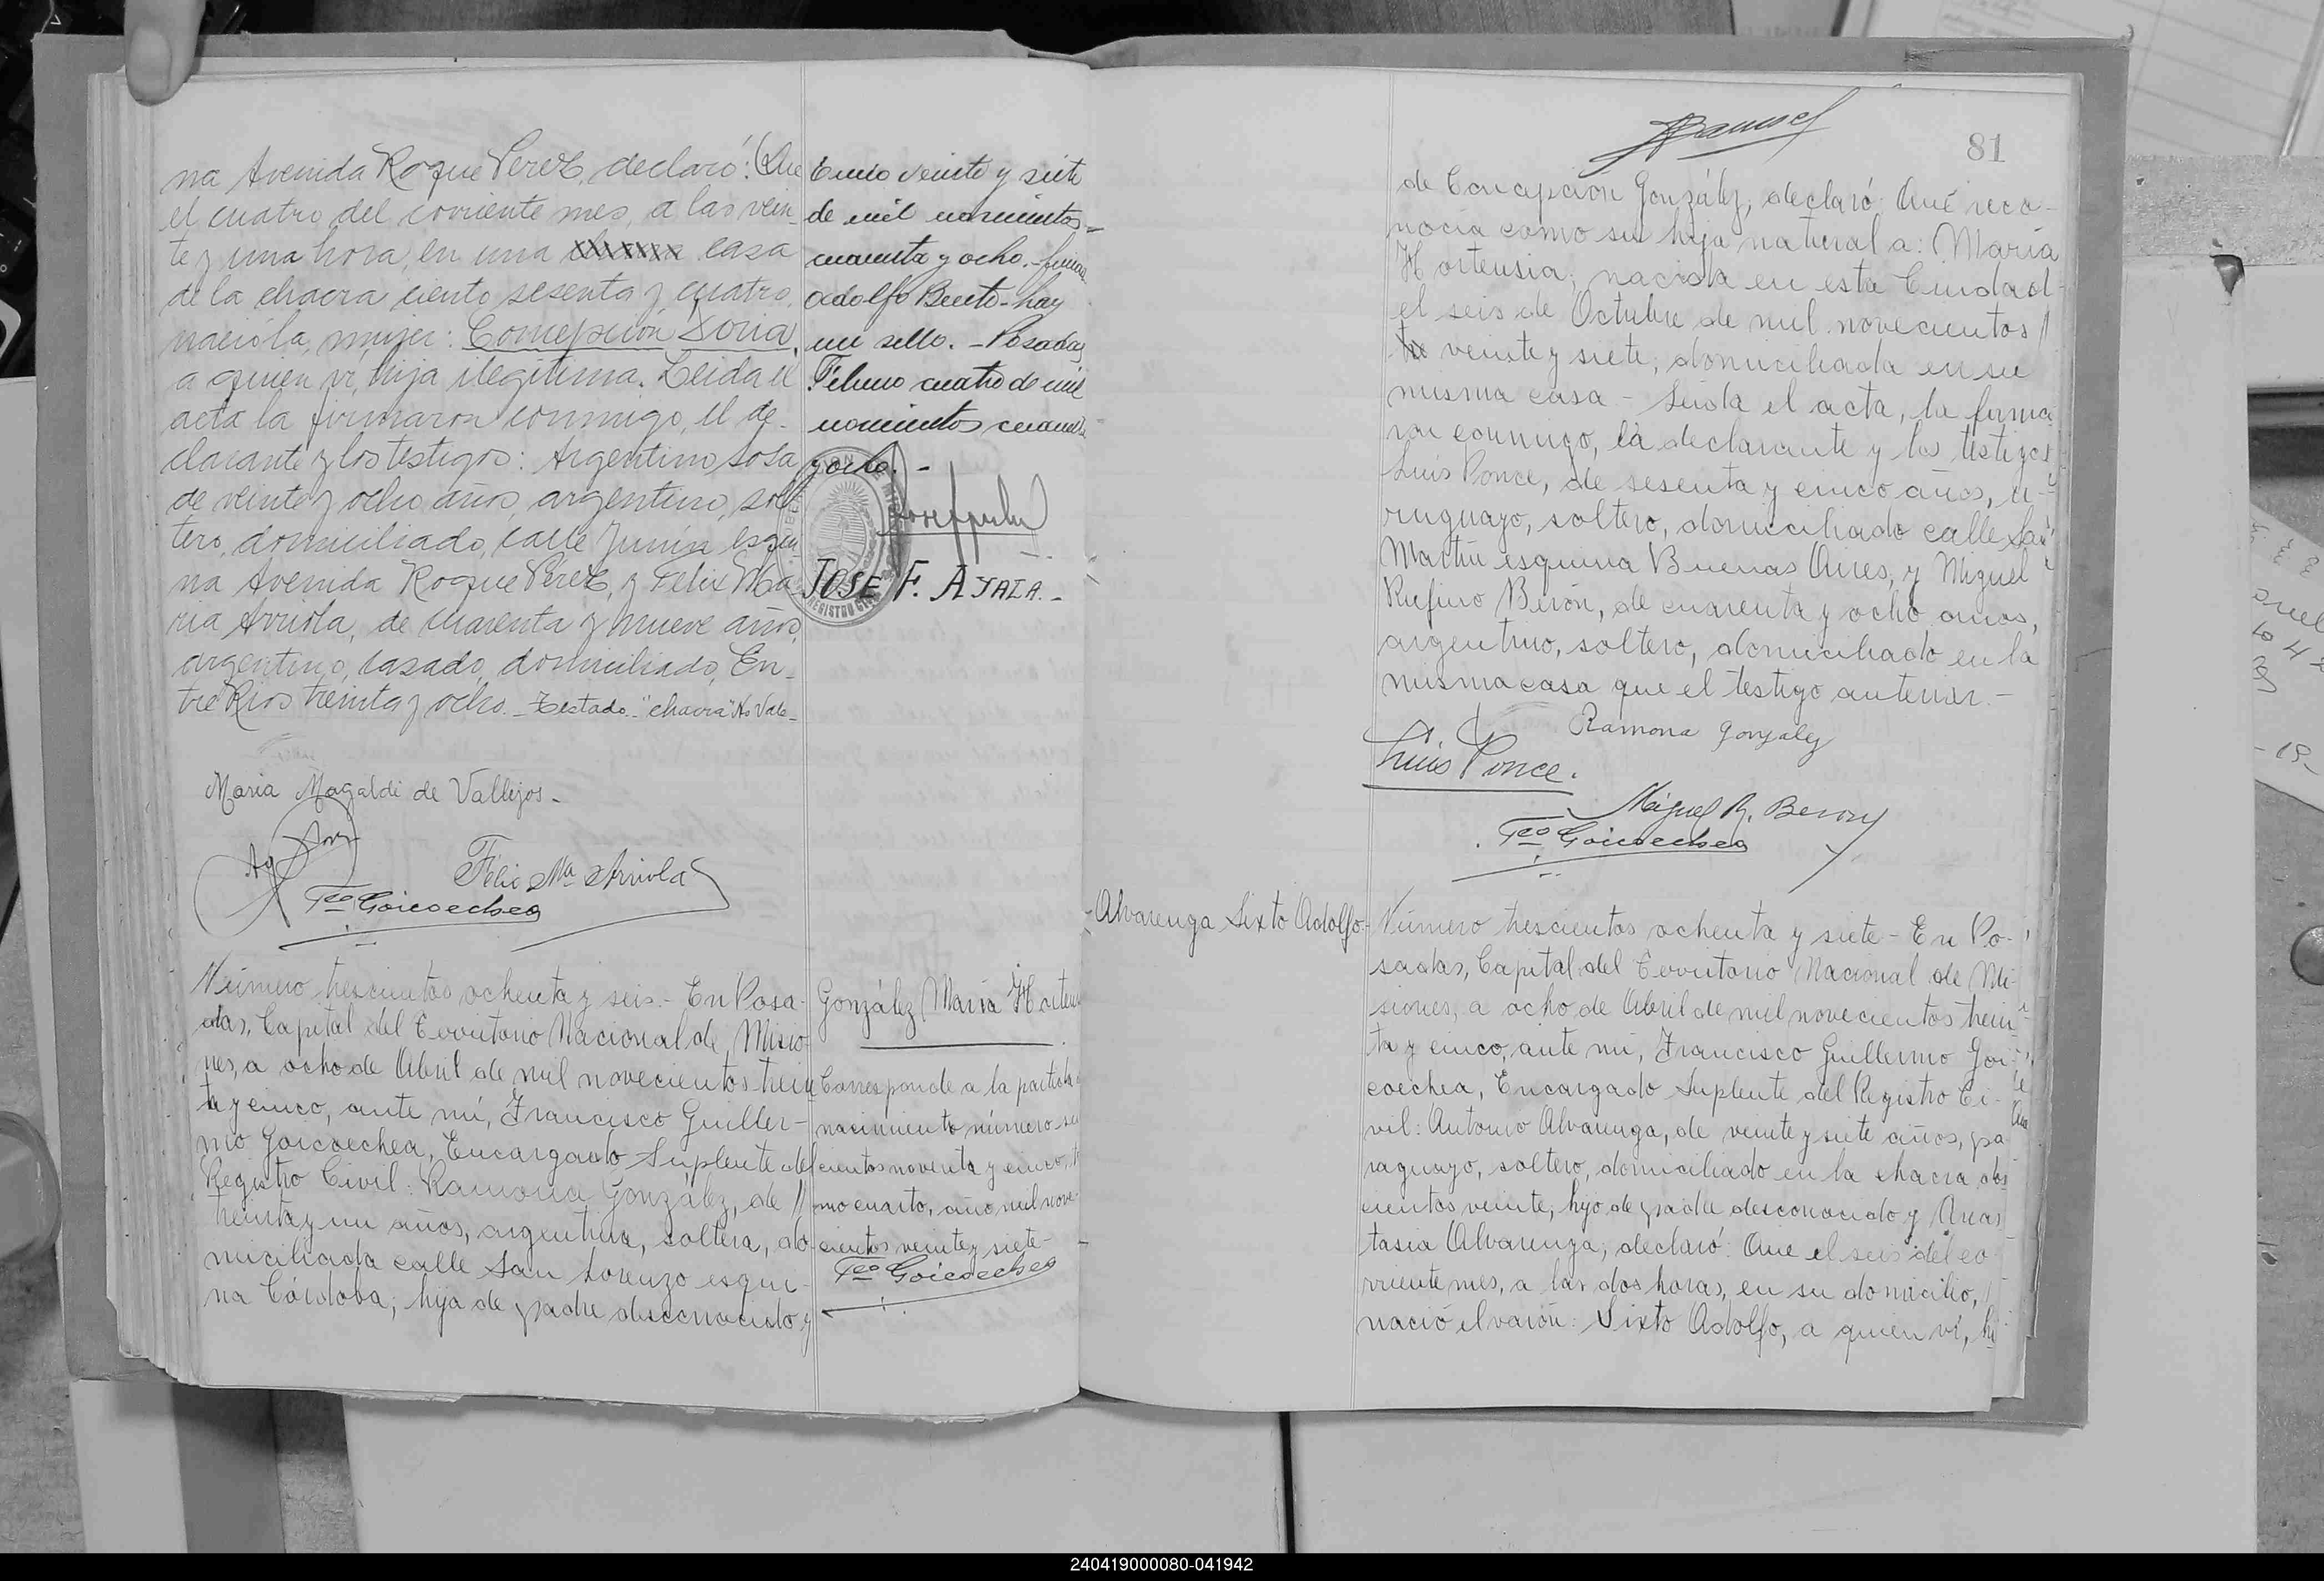 na Avenida Roque Perez, declaró: Que
el cuatro del corriente mes, a las vein-
te y una hora, en una casa
de la chacra ciento sesenta y cuatro,
nació la mujer: Concepción Soria,
a quien vi, hija ilegítima. Leida el
acta la firmaron conmigo, el de-
clarante y los testigos: Argentino Sosa
de veinte y ocho años, argentino, sol-
tero, domiciliado, calle Junín esqui-
na Avenida Roque Pérez, y Felix Ma-
ria Arriola, de cuarenta y nueve años,
argentino, casado, domiciliado, En-
tre Rios treinta y ocho. - Testado - "chacra" No Vale -
Maria Magaldi de Vallejos -
Felix Ma Arriola
Fco Goicoechea
Número trescientos ochenta y seis. - En Posa-
das, Capital del Territorio Nacional de Misio-
nes, a ocho de Abril de mil novecientos trein
ta y cinco, ante mí, Francisco Guiller-
mo Goicoechea, Encargado Suplente del
Registro Civil: Ramona González, de //
treinta y un años, argentina, soltera, do
miciliada calle San Lorenzo esqui-
na Córdoba; hija de padre desconocido y
Enero veinte y siete
de mil novecientos
cuarenta y ocho. - firma
Adolfo Bento - hay
un sello. - Posadas,
Febrero cuatro de mil
novecientos cuarenta
y ocho. -
JOSE F. AYALA. -
González María Horten
Corresponde a la partida
nacimiento número
cientos noventa y cinco,
mo cuarto, año mil nove-
cientos veinte y siete -
Fco Goicoechea
81
de Concepción González; declaró: Qué reco-
nocía como su hija natural a: María
Hortensia; nacida en esta Ciudad
el seis de Octubre de mil novecientos //
veinte y siete; domiciliada en su
misma casa - Leida el acta, la firma
ron conmigo, la declarante y los testigos
Luis Ponce, de sesenta y cinco años, u-
ruguayo, soltero, domiciliado calle San
Martín esquina Buenas Aires, y Miguel
Rufino Berón, de cuarenta y ocho años,
argentino, soltero, domiciliado en la
misma casa que el testigo anterior. -
Ramona Gonzalez
Luis Ponce.
Miguel R. Beron
Fco Goicoechea
Alvarenga Sixto Adolfo -
Número trescientos ochenta y siete - En Po-
sadas, Capital del Territorio Nacional de Mi-
siones, a ocho de Abril de mil novecientos trein
ta y cinco, ante mí, Francisco Guillermo Goi-
coechea, Encargado Suplente del Registro Ci-
vil: Antonio Alvarenga, de veinte y siete años, pa
raguayo, soltero, domiciliado en la chacra dos
cientos veinte; hijo de padre desconocido y Anas
tasia Alvarenga; declaró: Que el seis del co
rriente mes, a las dos horas, en su domicilio,
nació el varón: Sixto Adolfo, a quien ví, hi
240419000080-041942